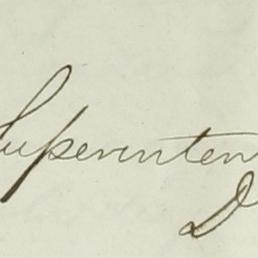 Superinten
D